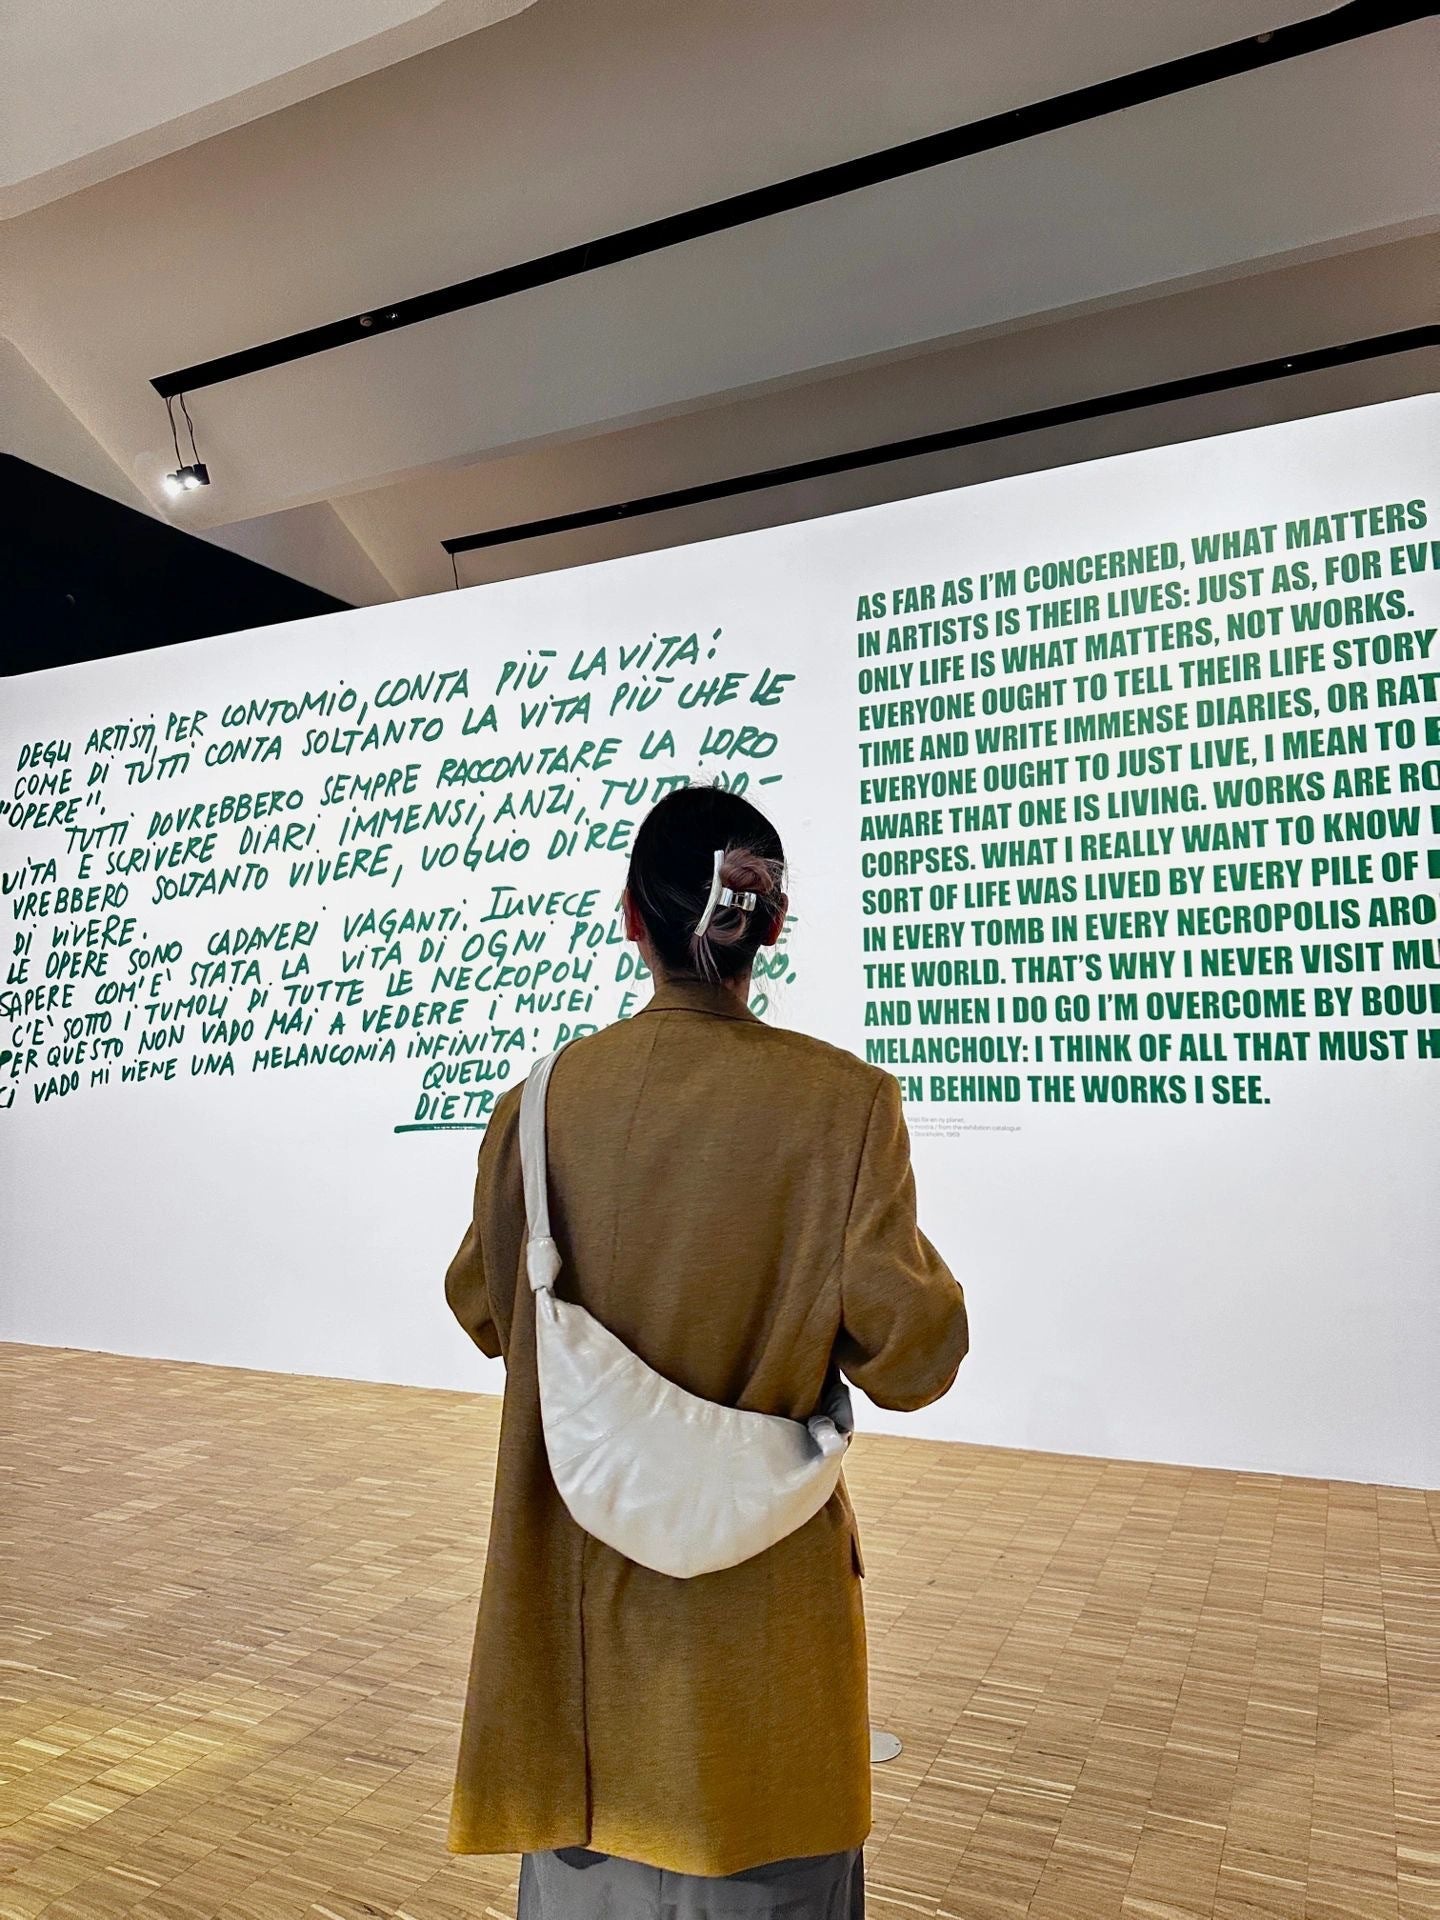 DEGLI ARTISTI, PER CONTO MIO, CONTA PIÙ LA VITA:
COME DI TUTTI CONTA SOLTANTO LA VITA PIÙ CHE LE
"OPERE".
TUTTI DOVREBBERO SEMPRE RACCONTARE LA LORO
VITA E SCRIVERE DIARI IMMENSI, ANZI, TUTTI DO-
VREBBERO SOLTANTO VIVERE, VOGLIO DIRE
DI VIVERE.
LE OPERE SONO CADAVERI VAGANTI. INVECE
SAPERE COM'E' STATA LA VITA DI OGNI
C'E' SOTTO I TUMOLI DI TUTTE LE NECROPOLI
PER QUESTO NON VADO MAI A VEDERE I MUSEI E
CI VADO MI VIENE UNA MELANCONIA INFINITA:
QUELLO
DIETRO
AS FAR AS I'M CONCERNED, WHAT MATTERS
IN ARTISTS IS THEIR LIVES: JUST AS, FOR
ONLY LIFE IS WHAT MATTERS, NOT WORKS.
EVERYONE OUGHT TO TELL THEIR LIFE STORY
TIME AND WRITE IMMENSE DIARIES, OR
EVERYONE OUGHT TO JUST LIVE, I MEAN TO
AWARE THAT ONE IS LIVING. WORKS ARE
CORPSES. WHAT I REALLY WANT TO KNOW
SORT OF LIFE WAS LIVED BY EVERY PILE OF
IN EVERY TOMB IN EVERY NECROPOLIS
THE WORLD. THAT'S WHY I NEVER VISIT
AND WHEN I DO GO I'M OVERCOME BY
MELANCHOLY: I THINK OF ALL THAT MUST
BEHIND THE WORKS I SEE.
from the exhibition catalogue
Stockholm, 1969